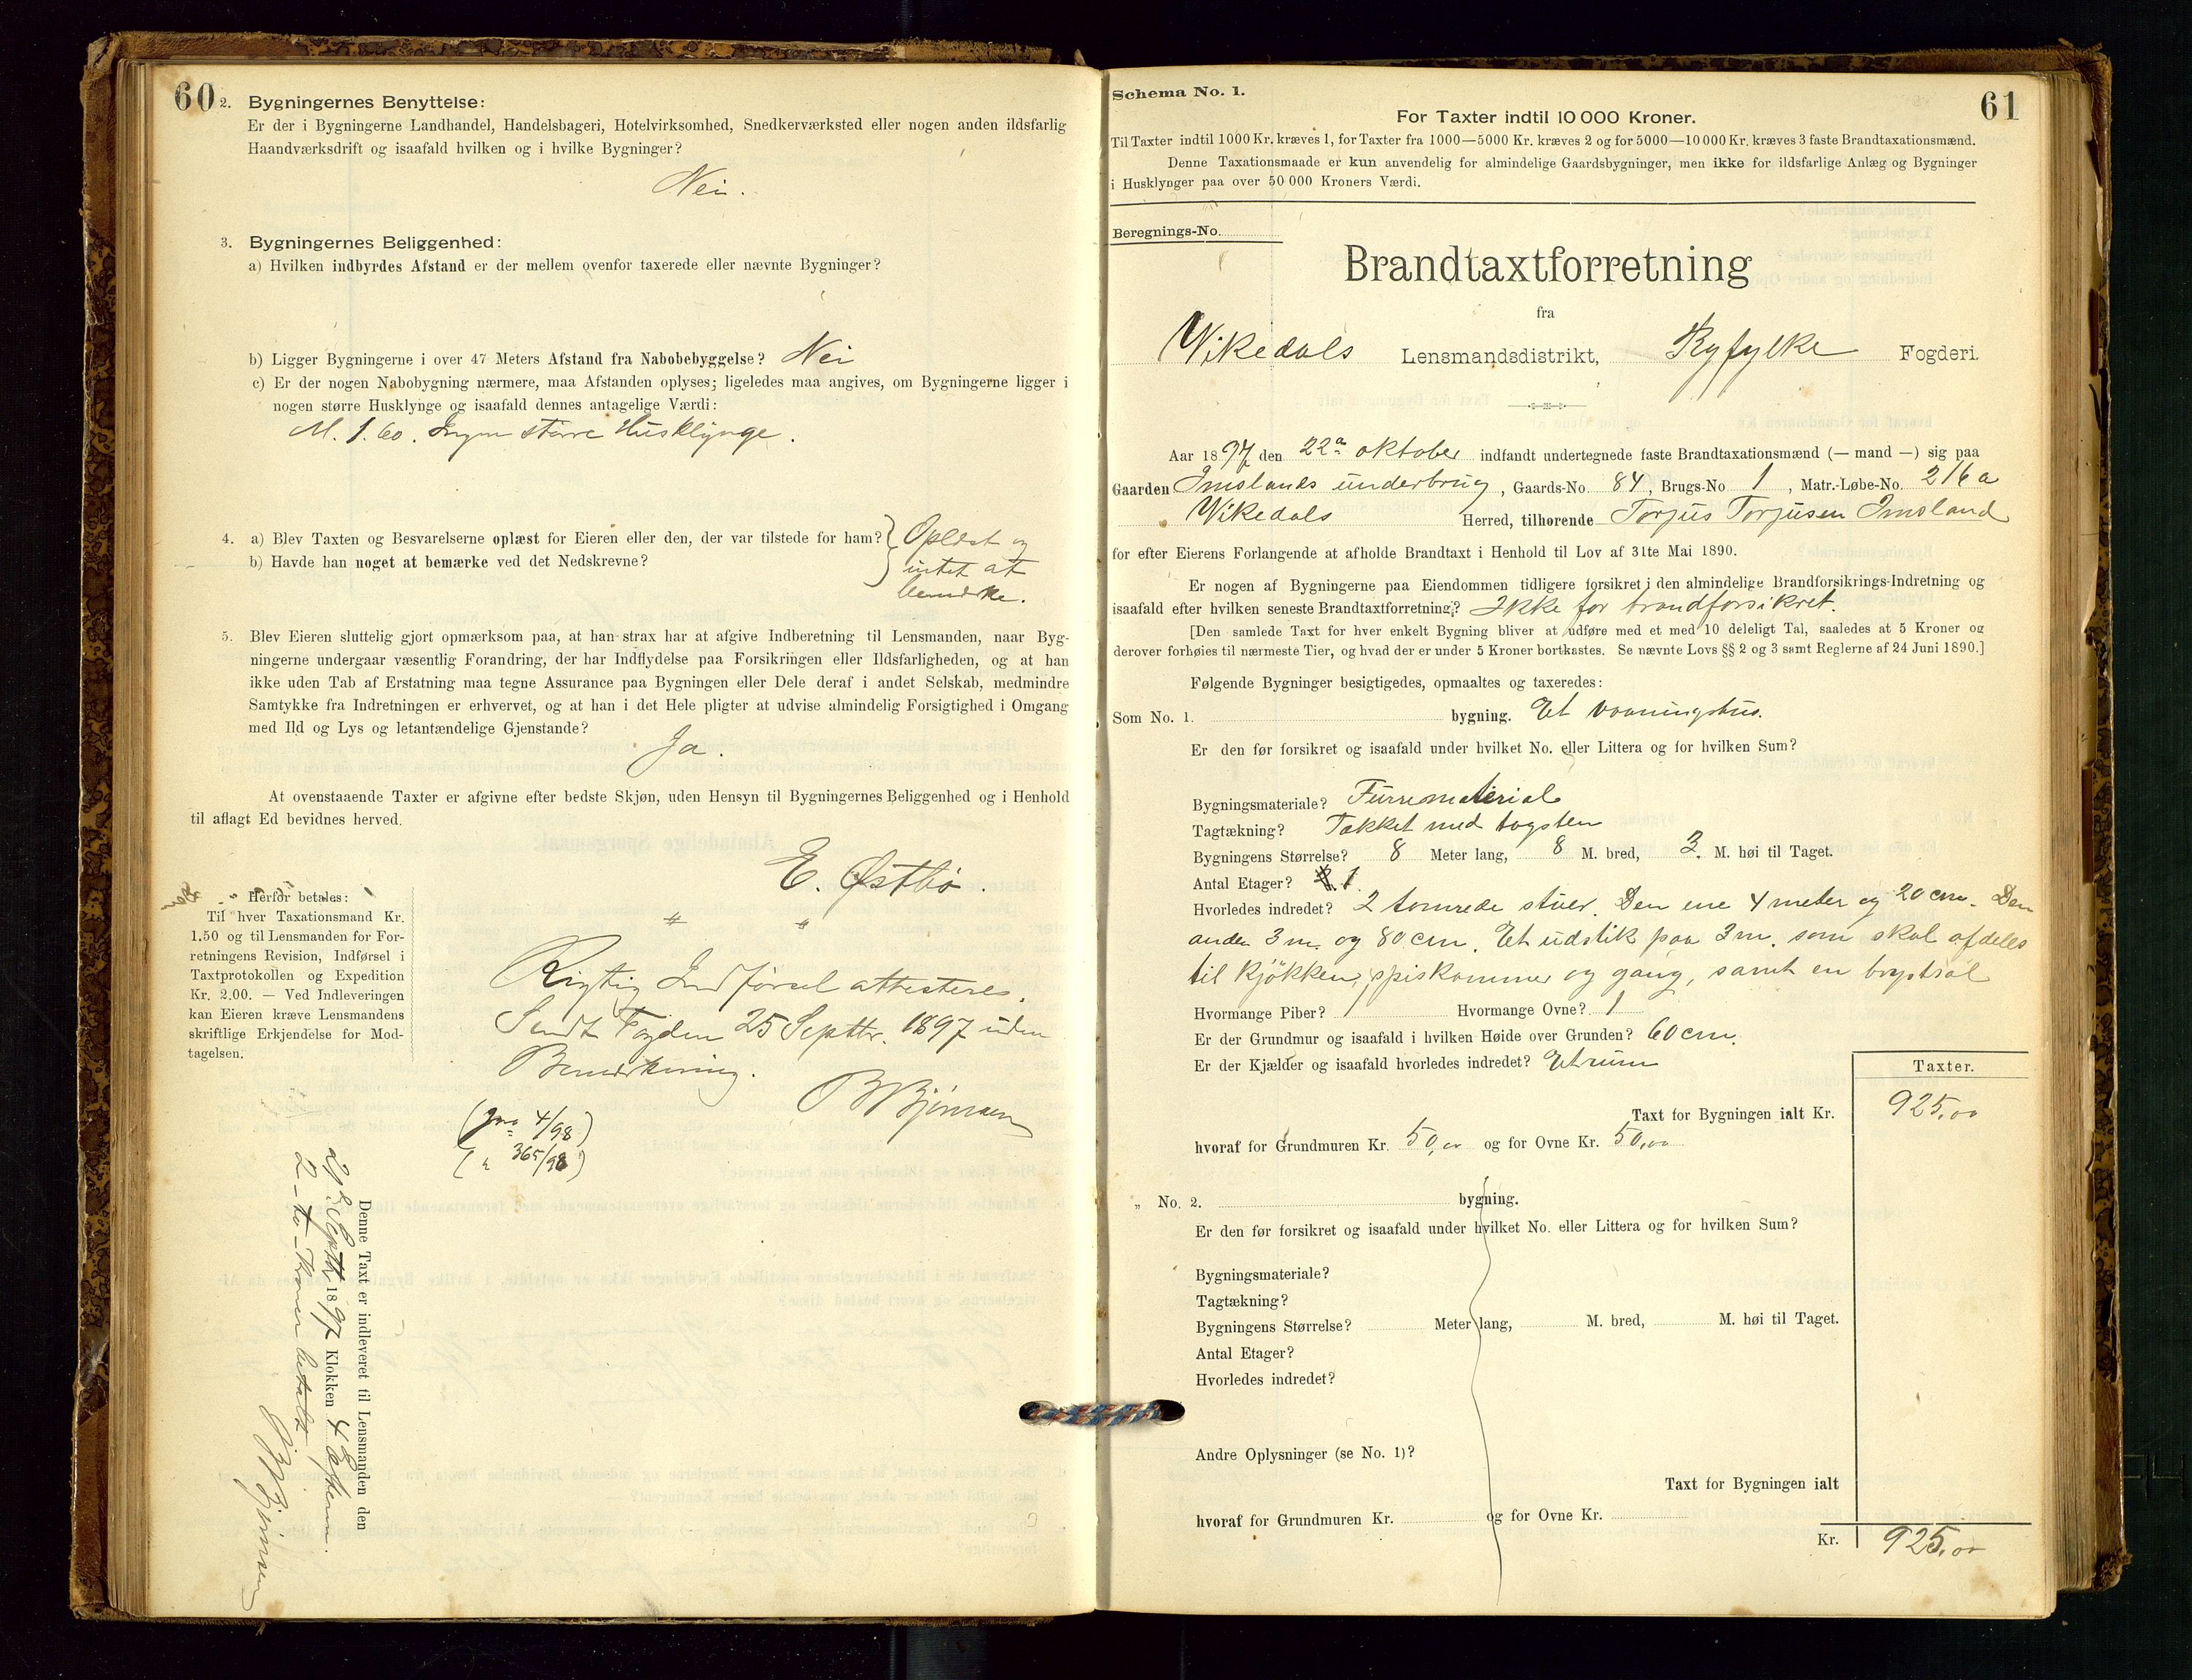 60
2. Bygningernes Benyttelse:
Er der i Bygningerne Landhandel, Handelsbageri, Hotelvirksomhed, Snedkerværksted eller nogen anden ildsfarlig
Haandværksdrift og isaafald hvilken og i hvilke Bygninger?
Nei.
3. Bygningernes Beliggenhed:
a) Hvilken indbyrdes Afstand er der mellem ovenfor taxerede eller nævnte Bygninger?
b) Ligger Bygningerne i over 47 Meters Afstand fra Nabobebyggelse? Nei
c) Er der nogen Nabobygning nærmere, maa Afstanden oplyses; ligeledes maa angives, om Bygningerne ligger i
nogen større Husklynge og isaafald dennes antagelige Værdi:
M. 1.60. Ingen større Husklynge.
4. a) Blev Taxten og Besvarelserne oplæst for Eieren eller den, der var tilstede for ham?
b) Havde han noget at bemærke ved det Nedskrevne?
Oplæst og
intet at
bemærke.
5. Blev Eieren sluttelig gjort opmærksom paa, at han strax har at afgive Indberetning til Lensmanden, naar Byg-
ningerne undergaar væsentlig Forandring, der har Indflydelse paa Forsikringen eller Ildsfarligheden, og at han
ikke uden Tab af Erstatning maa tegne Assurance paa Bygningen eller Dele deraf i andet Selskab, medmindre
Samtykke fra Indretningen er erhvervet, og at han i det Hele pligter at udvise almindelig Forsigtighed i Omgang
med Ild og Lys og letantændelige Gjenstande?
Ja.
At ovenstaaende Taxter er afgivne efter bedste Skjøn, uden Hensyn til Bygningernes Beliggenhed og i Henhold
til aflagt Ed bevidnes herved.
E. Østbö.
Herfor betales:
Til hver Taxationsmand Kr.
1.50 og til Lensmanden for For-
retningens Revision, Indførsel i
Taxtprotokollen og Expedition
Kr. 2.00. — Ved Indleveringen
kan Eieren kræve Lensmandens
skriftlige Erkjendelse for Mod-
tagelsen.
Rigtig Indførsel attesteres.
Sendt Fogden 25 Septbr. 1897 uden
Bemærkning.
B Bjørnsen
4/98)
365/98)
Denne Taxt er indleveret til Lensmanden den
Septbr 1897 Klokken 4 Efterm.
2 - to - Kroner betalt
B Bjørnsen
61
Schema No. 1.
For Taxter indtil 10 000 Kroner.
Til Taxter indtil 1000 Kr. kræves 1, for Taxter fra 1000—5000 Kr. kræves 2 og for 5000—10 000 Kr. kræves 3 faste Brandtaxationsmænd.
Denne Taxationsmaade er kun anvendelig for almindelige Gaardsbygninger, men ikke for ildsfarlige Anlæg og Bygninger
i Husklynger paa over 50 000 Kroners Værdi.
Beregnings-No.
Brandtaxtforretning
fra
Vikedals Lensmandsdistrikt, Ryfylke Fogderi.
Aar 1897 den 22de oktober indfandt undertegnede faste Brandtaxationsmænd (— mand —) sig paa
Gaarden Imslands underbrug, Gaards-No. 84, Brugs-No 1, Matr.-Løbe-No. 216a
Vikedals Herred, tilhørende Torjus Torjusen Imsland
for efter Eierens Forlangende at afholde Brandtaxt i Henhold til Lov af 31te Mai 1890.
Er nogen af Bygningerne paa Eiendommen tidligere forsikret i den almindelige Brandforsikrings-Indretning og
isaafald efter hvilken seneste Brandtaxtforretning? Ikke før brandforsikret.
[Den samlede Taxt for hver enkelt Bygning bliver at udføre med et med 10 deleligt Tal, saaledes at 5 Kroner og
derover forhøies til nærmeste Tier, og hvad der er under 5 Kroner bortkastes. Se nævnte Lovs §§ 2 og 3 samt Reglerne af 24 Juni 1890.]
Følgende Bygninger besigtigedes, opmaaltes og taxeredes:
Som No. 1. bygning. Et vaaningshus.
Er den før forsikret og isaafald under hvilket No. eller Littera og for hvilken Sum?
Bygningsmateriale? Furrematerial
Tagtækning? Takket med tagsten
Bygningens Størrelse? 8 Meter lang, 8 M. bred, 3 M. høi til Taget.
Antal Etager? 1
Hvorledes indredet? 2 tømrede stuer. Den ene 4 meter og 20 cm. Den
anden 3 m. og 80 cm. Et udstik paa 3 m. som skal afdeles
til kjökken, spiskammer og gang, samt en
Hvormange Piber? 1 Hvormange Ovne? 1
Er der Grundmur og isaafald i hvilken Høide over Grunden? 60 cm.
Er der Kjælder og isaafald hvorledes indredet? Et rum
Taxter.
Taxt for Bygningen ialt Kr. 925,00
hvoraf for Grundmuren Kr. 50,00 og for Ovne Kr. 50,00
„ No. 2. bygning.
Er den før forsikret og isaafald under hvilket No. eller Littera og for hvilken Sum?
Bygningsmateriale?
Tagtækning?
Bygningens Størrelse? Meter lang, M. bred, M. høi til Taget.
Antal Etager?
Hvorledes indredet?
Andre Oplysninger (se No. 1)?
Taxt for Bygningen ialt
hvoraf for Grundmuren Kr. og for Ovne Kr.
Kr. 925,00